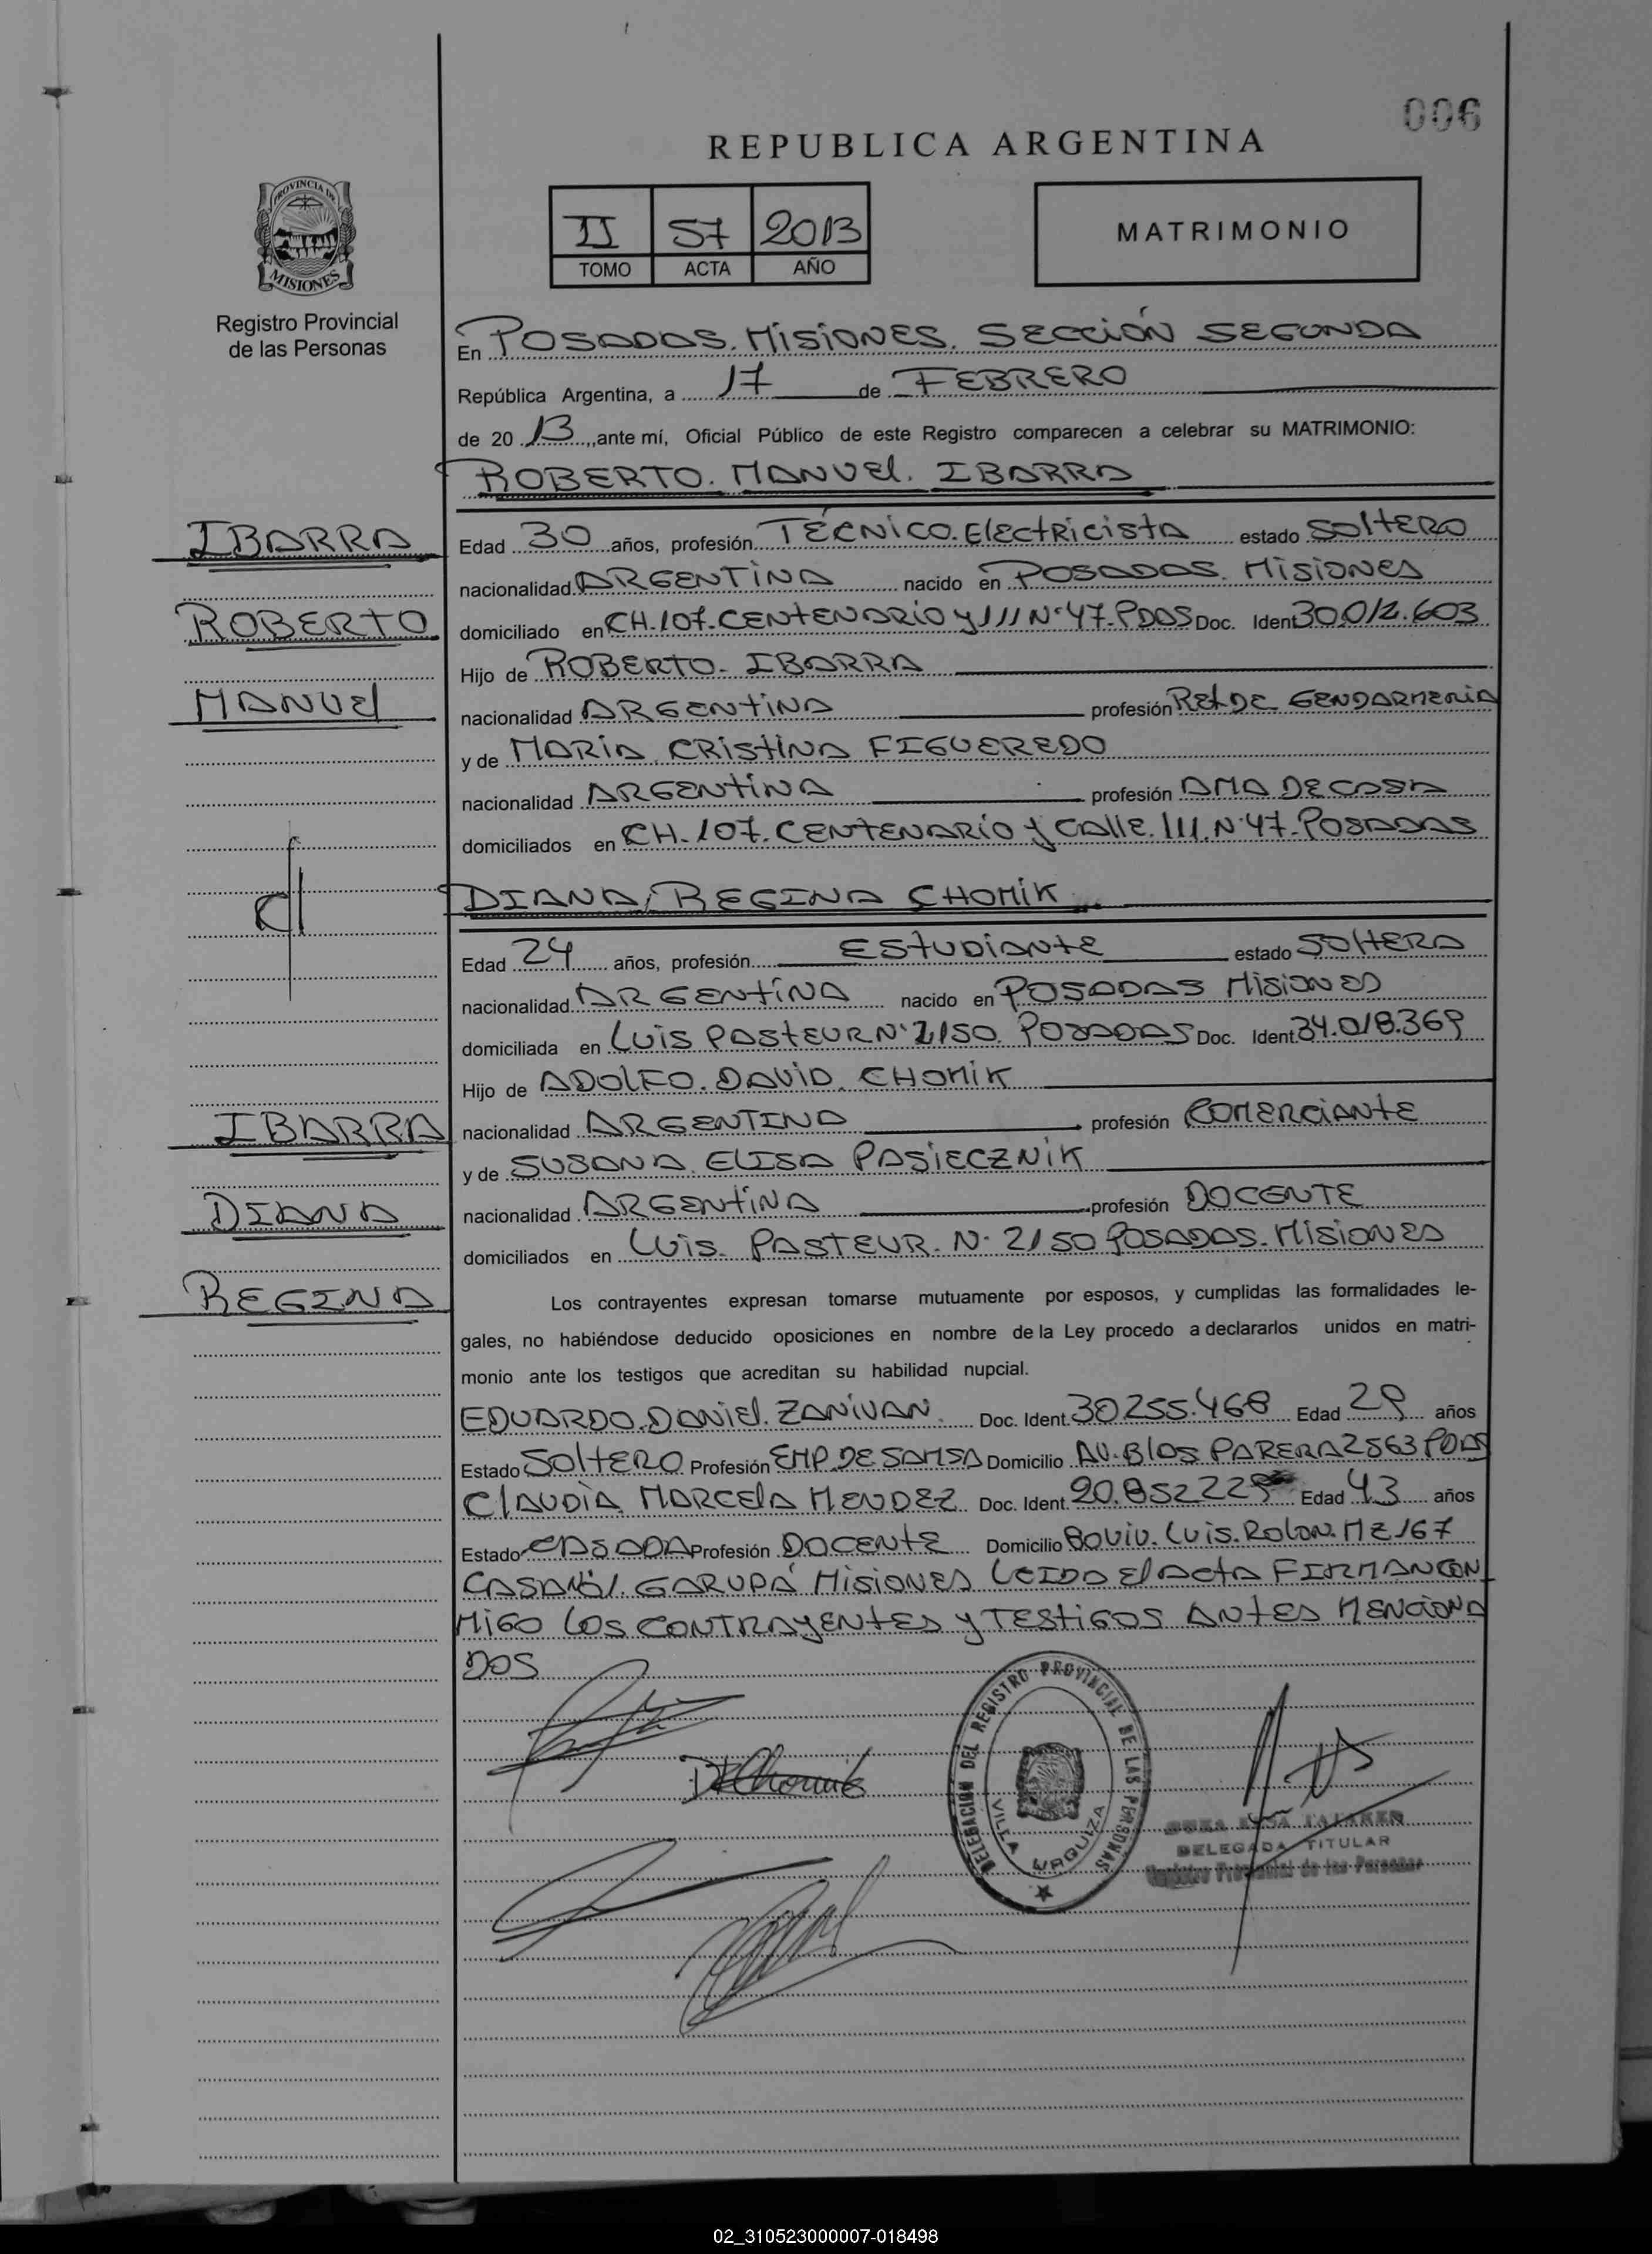 006
REPUBLICA ARGENTINA
II 57 2013
TOMO ACTA AÑO
MATRIMONIO
PROVINCIA DE
MISIONES
Registro Provincial
de las Personas
En POSADAS. MISIONES. SECCIÓN SEGUNDA
República Argentina, a 17 de FEBRERO
de 20 13, ante mí, Oficial Público de este Registro comparecen a celebrar su MATRIMONIO:
ROBERTO. MANUEL. IBARRA
IBARRA
ROBERTO
MANUEL
Edad 30 años, profesión TÉCNICO. ELECTRICISTA estado SOLTERO
nacionalidad ARGENTINA nacido en POSADAS. MISIONES
domiciliado en CH.107.CENTENARIO y III N°47-PDAS Doc. Ident 30.012.603
Hijo de ROBERTO. IBARRA
nacionalidad ARGENTINA profesión RET.DE GENDARMERIA
y de MARIA CRISTINA FIGUEREDO
nacionalidad ARGENTINA profesión AMA DE CASA
domiciliados en CH.107.CENTENARIO y CALLE. III. N°47-POSADAS
DIANA REGINA CHOMIK
Edad 24 años, profesión ESTUDIANTE estado SOLTERA
nacionalidad ARGENTINA nacido en POSADAS MISIONES
domiciliada en LUIS PASTEUR N°2150. POSADAS Doc. Ident. 34.018.369
Hijo de ADOLFO. DAVID. CHOMIK
IBARRA
DIANA
REGINA
nacionalidad ARGENTINA profesión COMERCIANTE
y de SUSANA ELISA PASIECZNIK
nacionalidad ARGENTINA profesión DOCENTE
domiciliados en LUIS. PASTEUR. N° 2150 POSADAS. MISIONES
Los contrayentes expresan tomarse mutuamente por esposos, y cumplidas las formalidades le-
gales, no habiéndose deducido oposiciones en nombre de la Ley procedo a declararlos unidos en matri-
monio ante los testigos que acreditan su habilidad nupcial.
EDUARDO. DANIEL. ZANIVAN. Doc. Ident. 30.255.468 Edad 29 años
Estado SOLTERO Profesión EMP.DE SAMSA Domicilio AV. BLAS PARERA 2563 PDAS
CLAUDIA MARCELA MENDEZ Doc. Ident. 20.852.229 Edad 43 años
Estado CASADA Profesión DOCENTE Domicilio 80 VIV. LUIS. ROLON. MZ 167
CASA N° 1. GARUPÁ MISIONES LEIDA EL ACTA FIRMAN CON
MIGO LOS CONTRAYENTES y TESTIGOS ANTES MENCIONA
DOS
DELEGACION DEL REGISTRO PROVINCIAL DE LAS PERSONAS
VILLA URQUIZA
DELEGADA TITULAR
Registro Provincial de las Personas
02_310523000007-018498